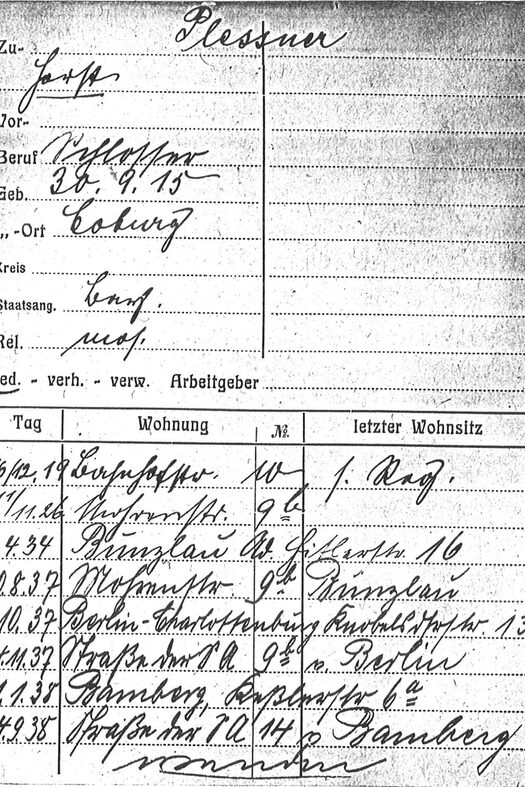 Plessner
Zu-
Horst
Vor-
Beruf Schlosser
Geb. 30.9.15
„ -Ort Coburg
Kreis
Staatsang. Bay.
Rel. mos.
led. - verh. - verw. Arbeitgeber
Tag Wohnung №. letzter Wohnsitz
/12.19 Bahnhofstr. 10 s. Reg.
/11.26 Mohrenstr. 9b
4.34 Bunzlau Ad. Hitlerstr. 16
.8.37 Mohrenstr. 9b Bunzlau
10.37 Berlin-Charlottenburg Knobelsdrstr. 13
.11.37 Straße der SA 9b v. Berlin
.1.38 Bamberg, Keßlerstr 6a
4.9.38 Straße der SA 14 v. Bamberg
wenden